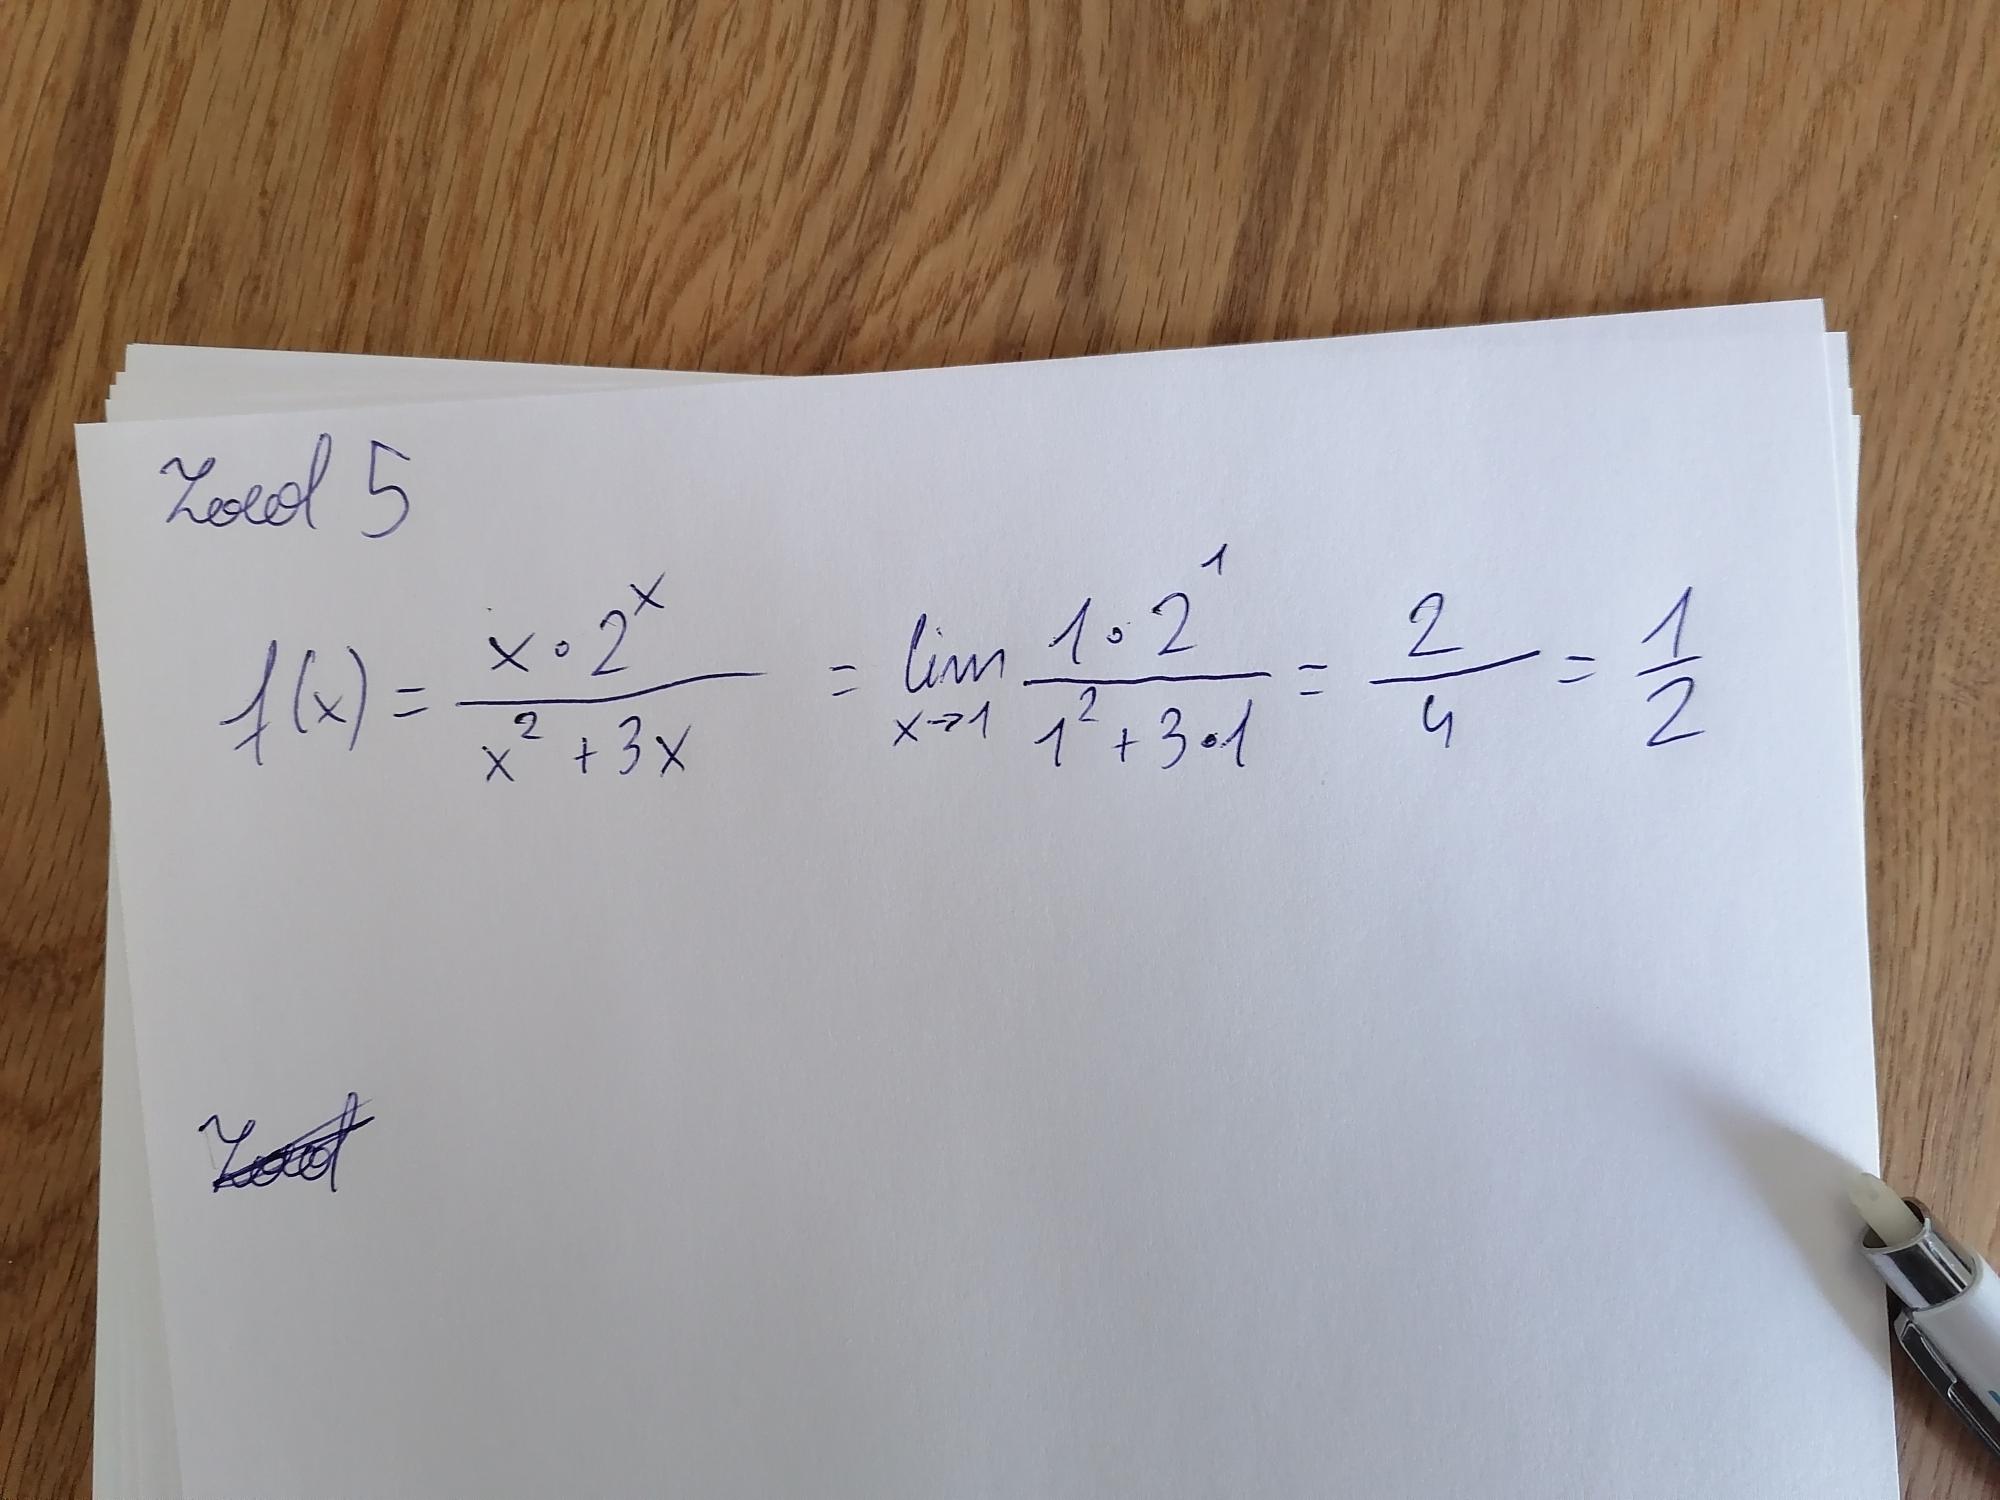 Zad 5
f(x) = \frac{x \cdot 2^x}{x^2 + 3x} = \lim_{x \to 1} \frac{1 \cdot 2^1}{1^2 + 3 \cdot 1} = \frac{2}{4} = \frac{1}{2}